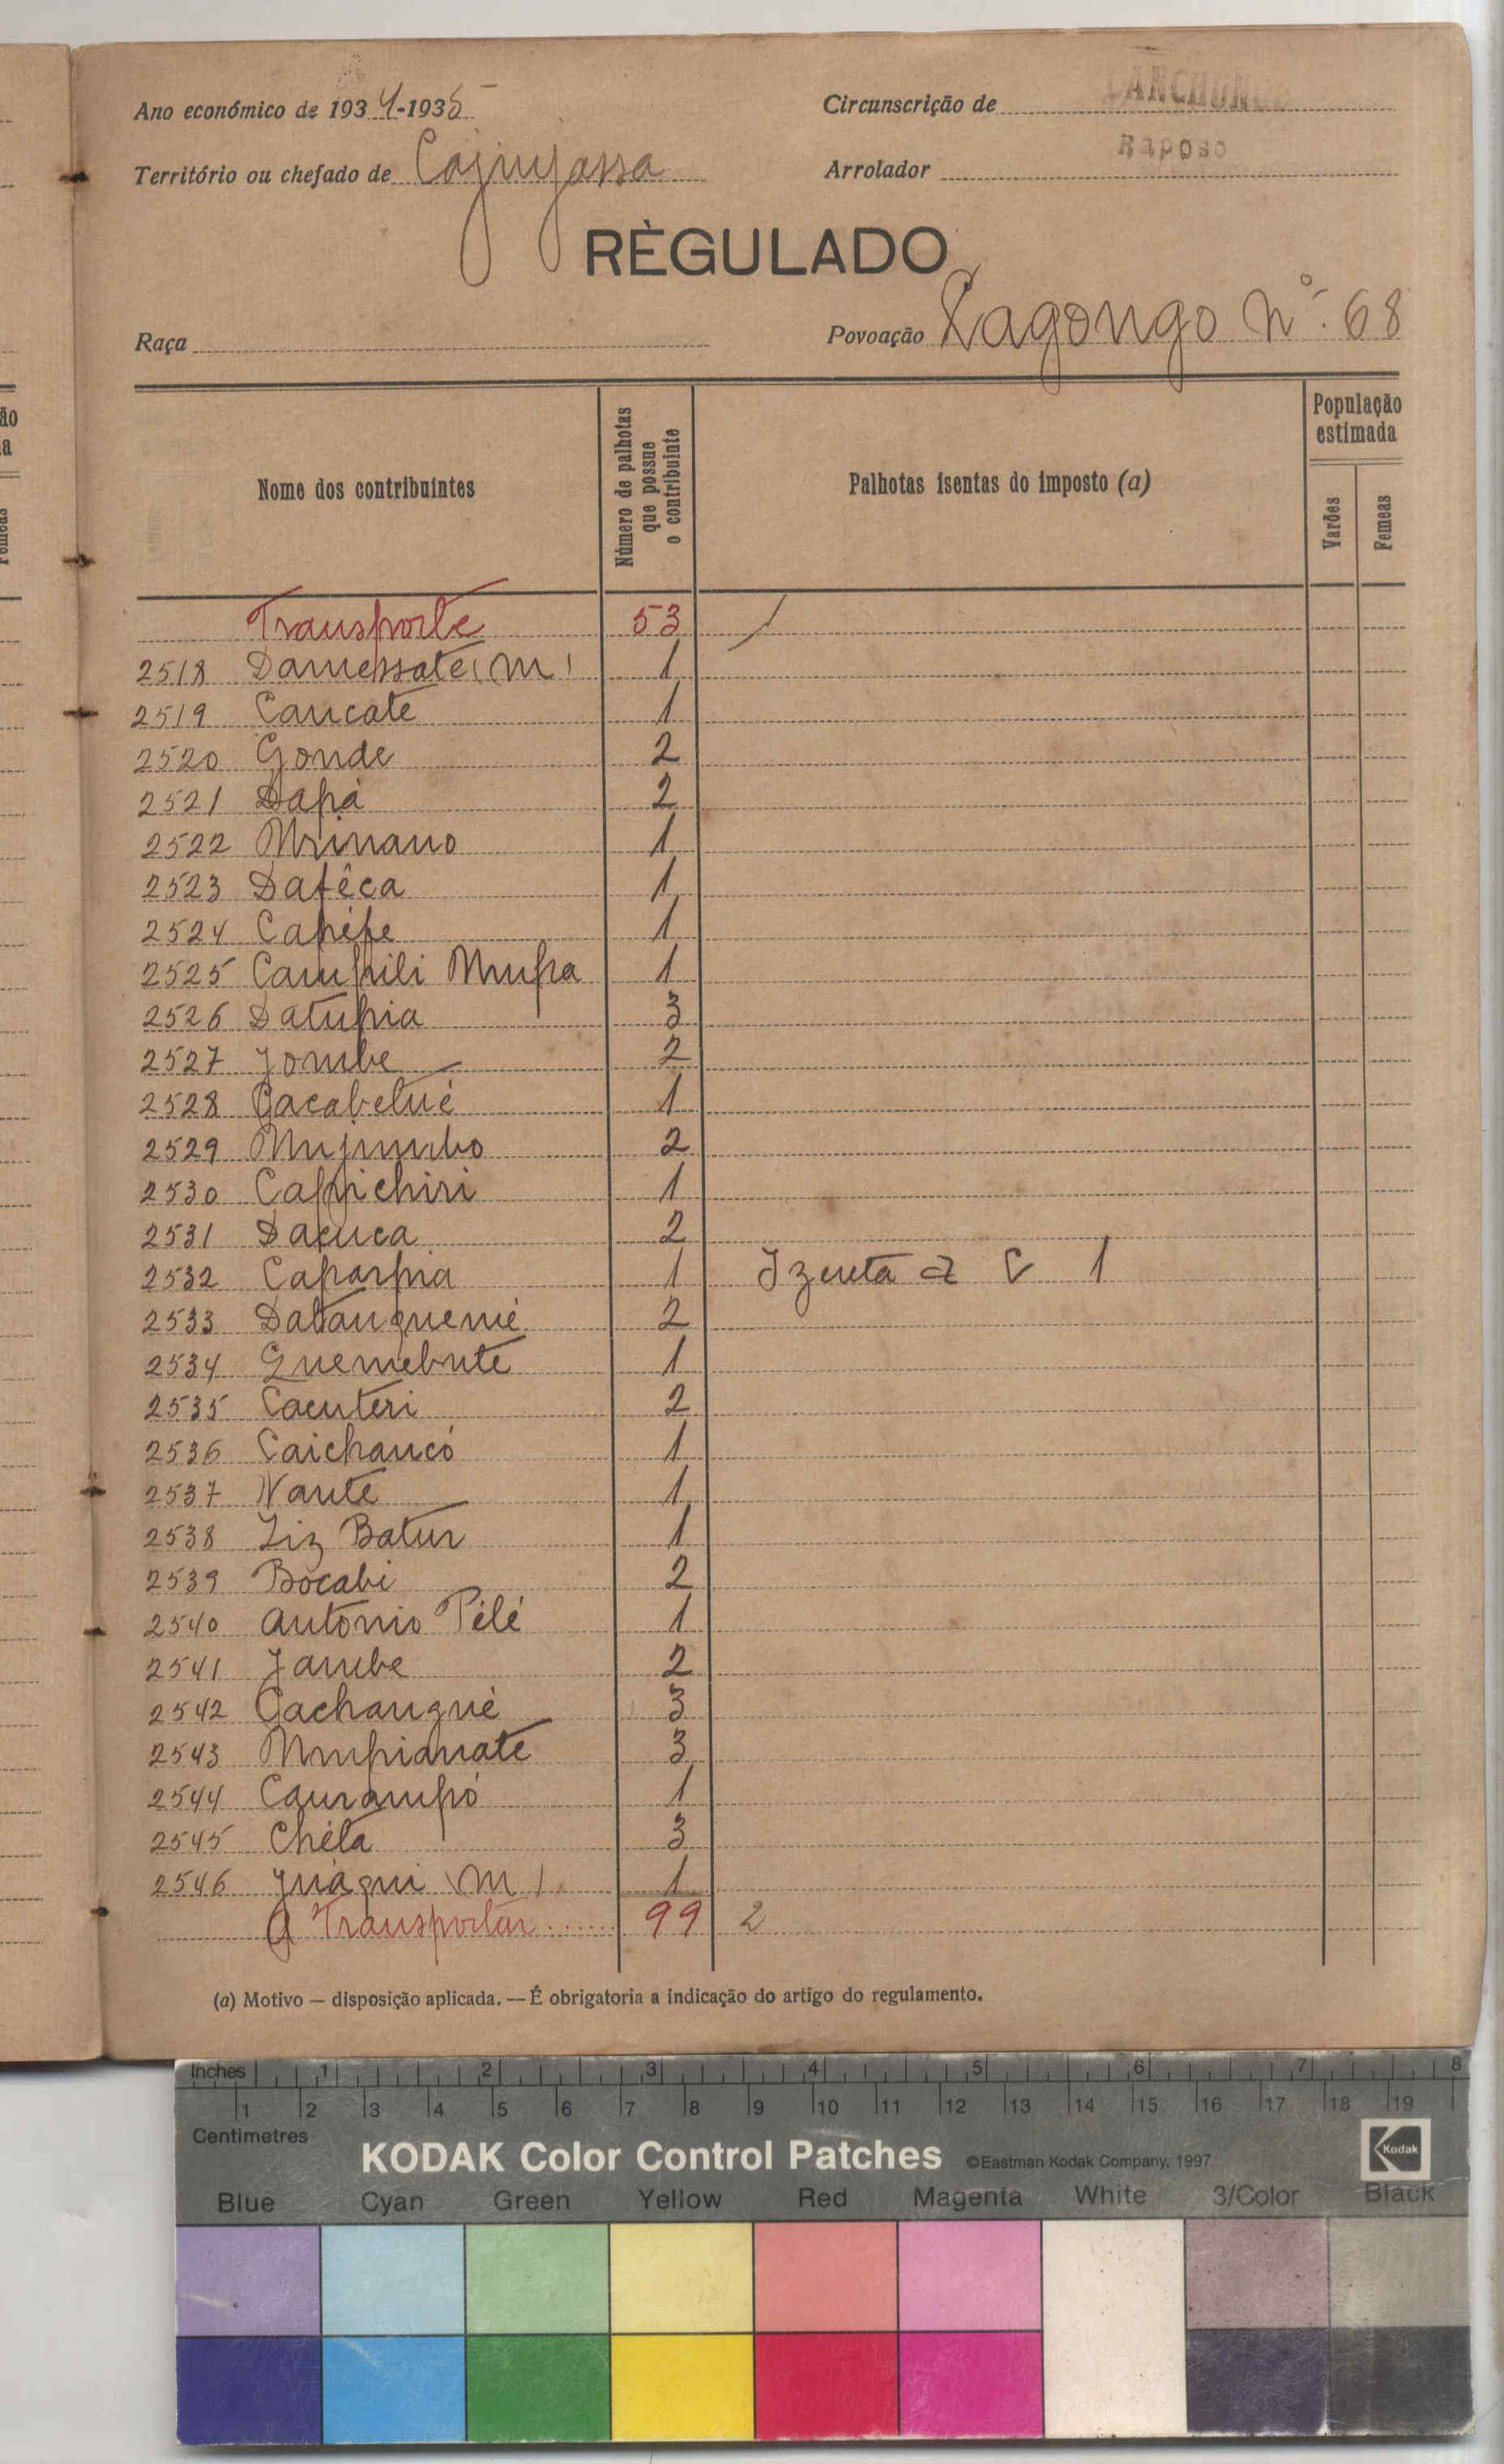 Ano económico de 1934-1935
Circunscrição de
Território ou chefado de
Arrolador Raposo
RÈGULADO
Raça
Povoação Xagongo Nº. 68
Nome dos contribuintes
Número de palhotas que possue o contribuinte
Palhotas isentas do imposto (a)
População estimada
Varões
Femeas
Transporte 53 /
2518 Damessate (M) 1
2519 Caucate 1
2520 Gonde 2
2521 Dapá 2
2522 Mrinano 1
2523 Dafêca 1
2524 Capépe 1
2525 Campili Mupa 1
2526 Datupia 3
2527 Jombe 2
2528 Cacabelué 1
2529 Mujimbo 2
2530 Capichiri 1
2531 Dacuca 2
2532 Caparpia 1 Izenta a C 1
2533 Datanguenié 2
2534 Quemebute 1
2535 Cacuteri 2
2536 Caichaucó 1
2537 Naute 1
2538 Liz Batur 1
2539 Bocabi 2
2540 Antonio Pélé 1
2541 Jambe 2
2542 Cachangué 3
2543 Mupianate 3
2544 Caurampó 1
2545 Chéla 3
2546 Juaqui (M) 1
A Transportar...... 99 2
(a) Motivo — disposição aplicada. — É obrigatoria a indicação do artigo do regulamento.
Inches 1 2 3 4 5 6 7 8
1 2 3 4 5 6 7 8 9 10 11 12 13 14 15 16 17 18 19
Centimetres
KODAK Color Control Patches ©Eastman Kodak Company, 1997 Kodak
Blue Cyan Green Yellow Red Magenta White 3/Color Black